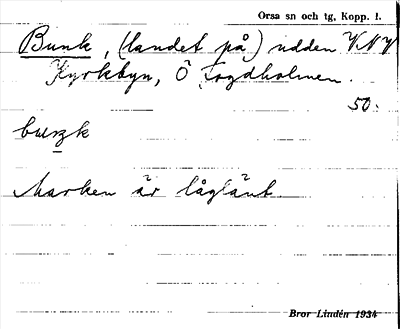 Orsa sn och tg, Kopp. l.
Bunk, (landet på) udden V.N.V
Kyrkbyn, Ö Fogdholmen.
50.
buŋk
Marken är låglänt.
Bror Lindén 1934